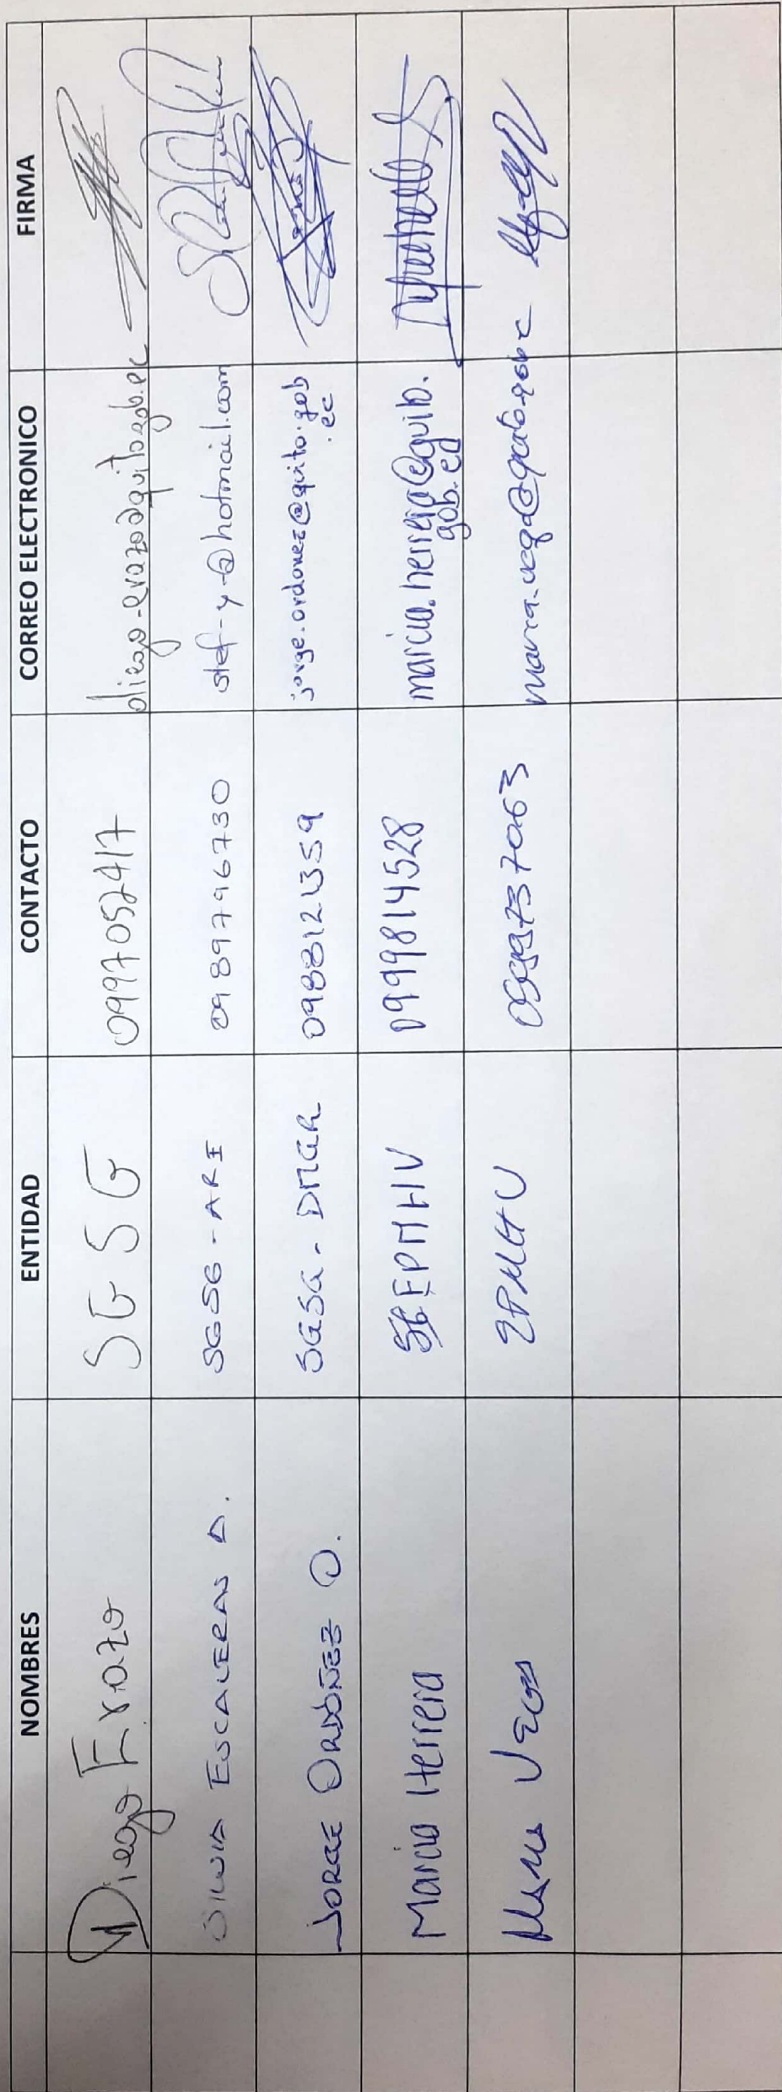 NOMBRES ENTIDAD CONTACTO CORREO ELECTRONICO FIRMA
Diego Erazo SGSG 0997052417 diego.erazo@quito.gob.ec
SILVIA ESCALERAS A. SGSG-ARI 0989796730 stef-y-@hotmail.com
JORGE ORDÓÑEZ O. SGSG-DMGR jorge.ordonez@quito.gob
.ec
Marcia Herrera EPMHV 0999814528 marcia.herrera@quito.
gob.ec
Vega 0999737063